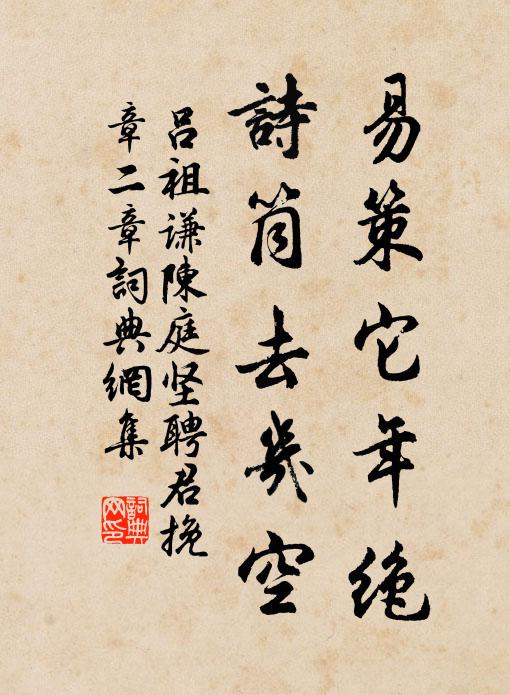 易策它年绝
詩筒去幾空
吕祖谦陳庭坚聘君挽
章二章詞典網集
詞典网印